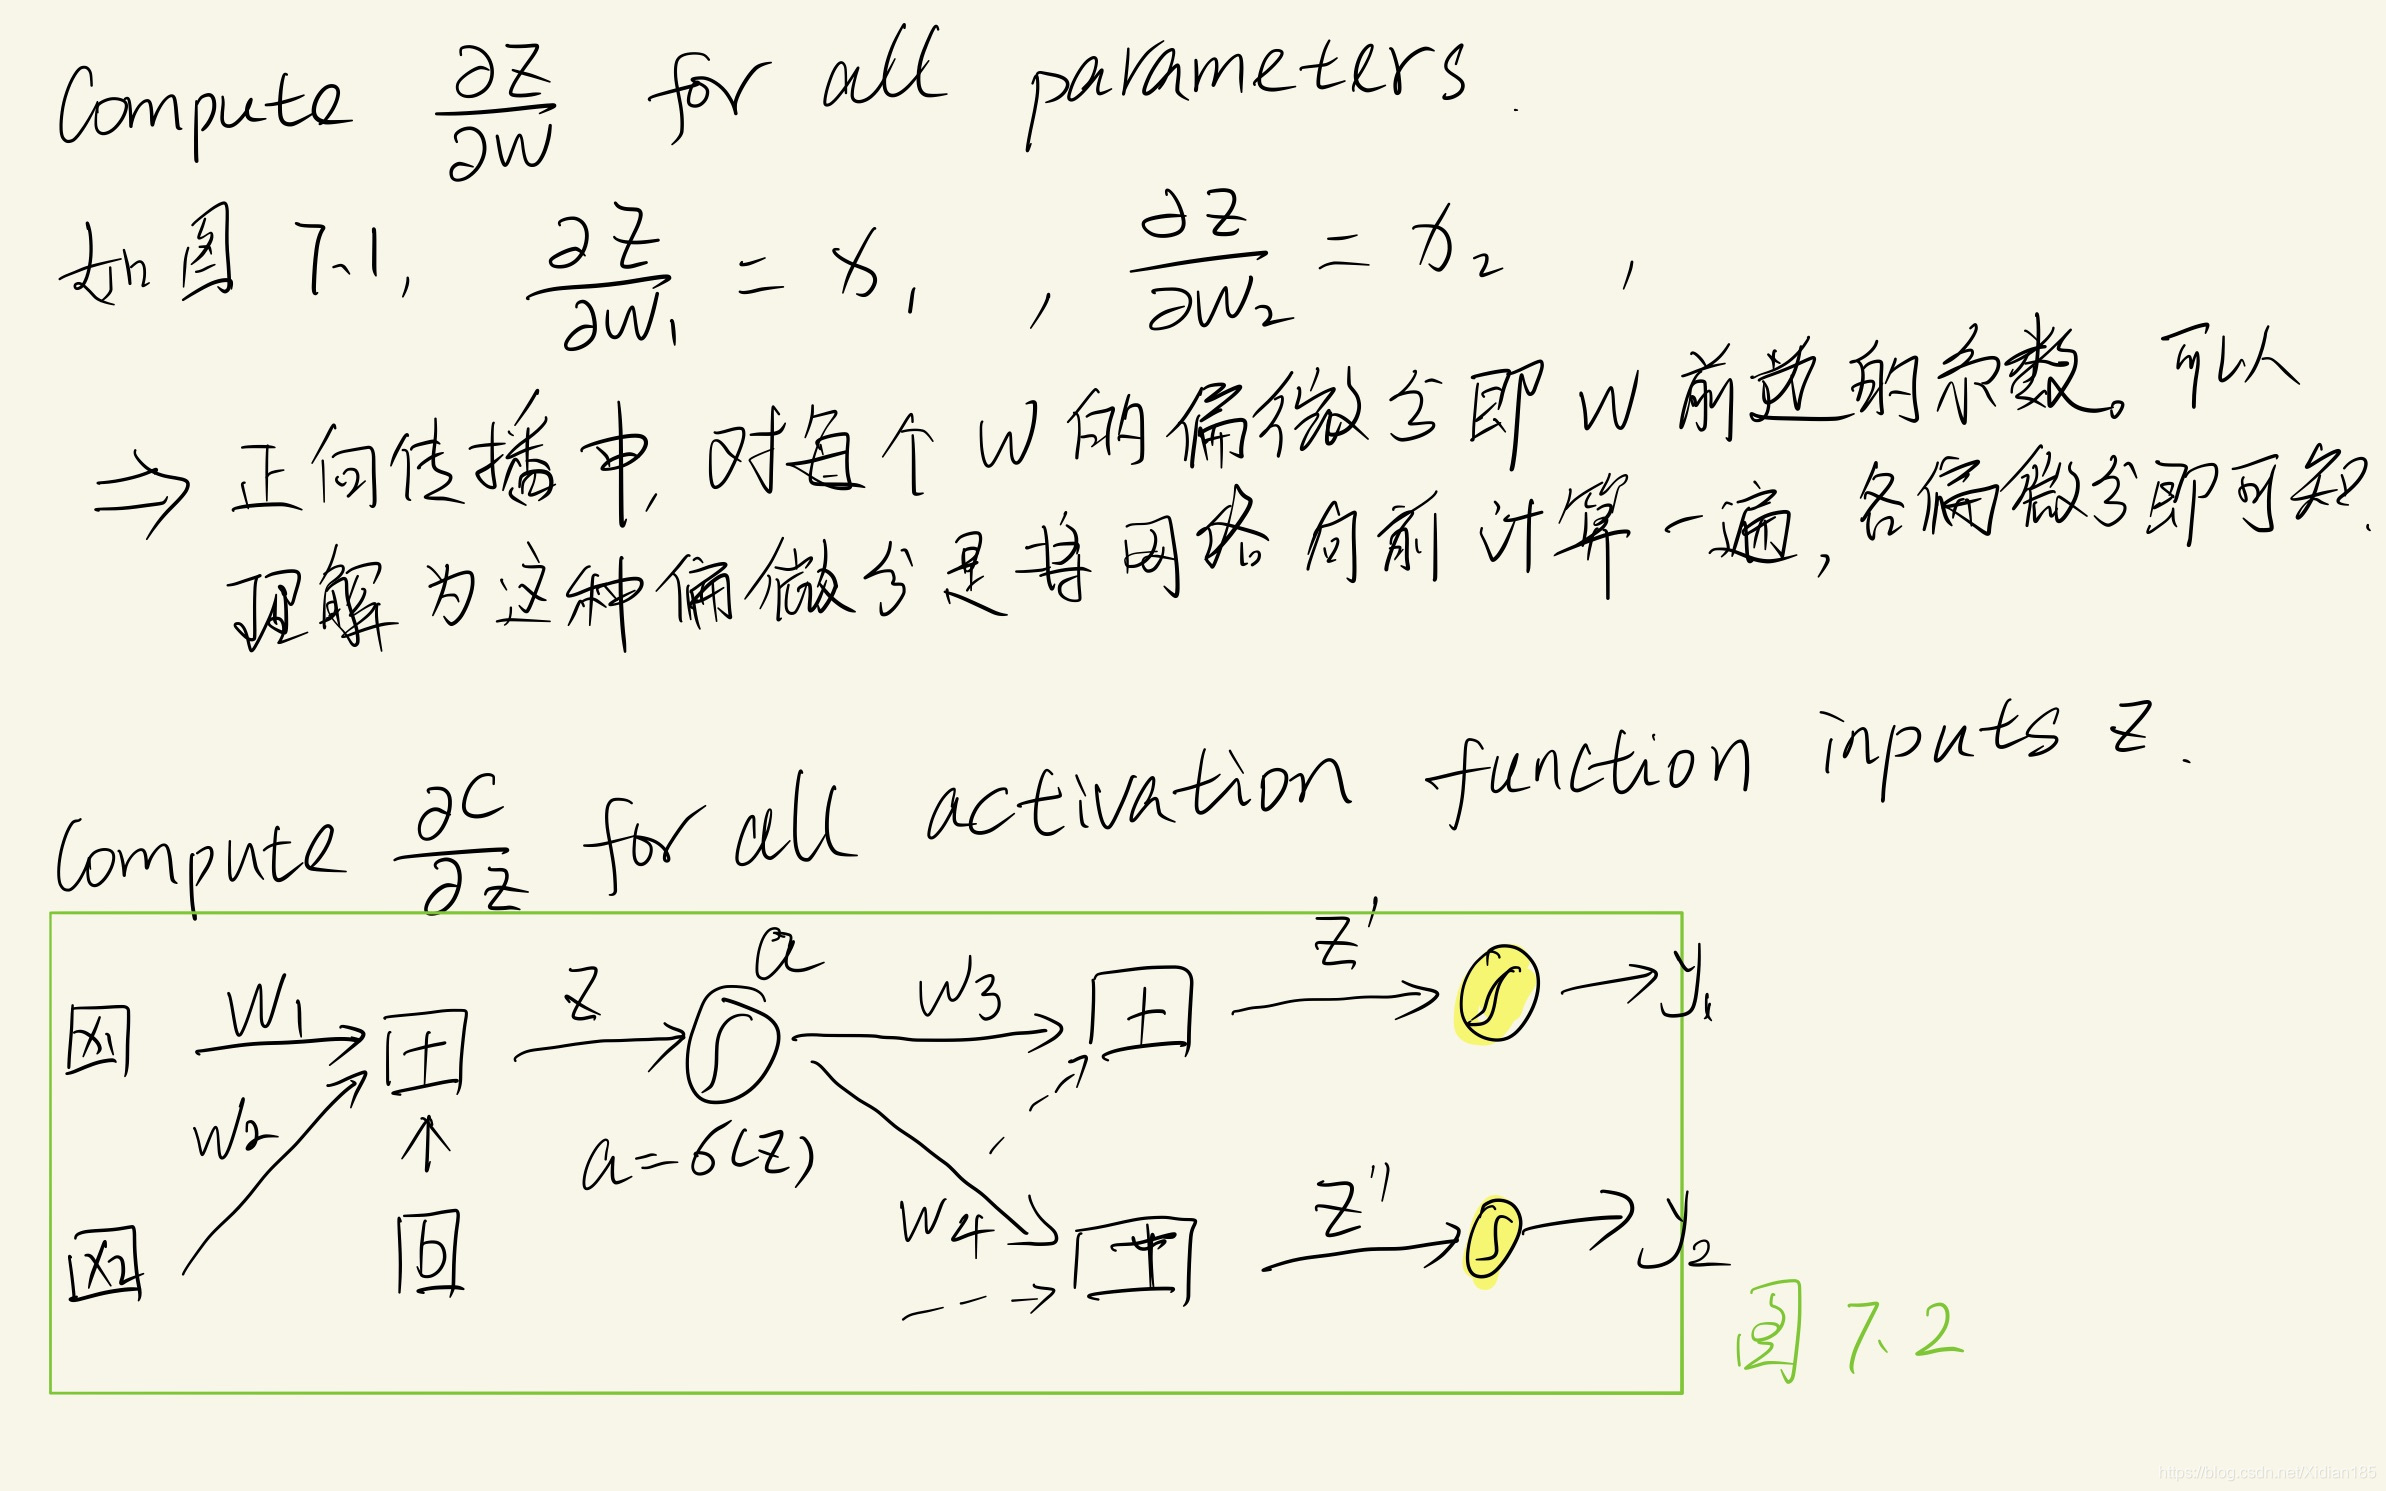 Compute ∂z/∂w for all parameters.
如图 7.1, ∂z/∂w₁ = x₁, ∂z/∂w₂ = x₂,
⇒ 正向传播中, 对每个 w 的偏微分即 w 前边的系数。可以
理解为这种偏微分是将网络向前计算一遍, 各偏微分即可知.
Compute ∂C/∂z for all activation function inputs z.
x₁ w₁ + z a w₃ + z' y₁
w₂ a=σ(z)
x₂ b w₄ + z'' y₂
图 7.2
https://blog.csdn.net/Xidian185